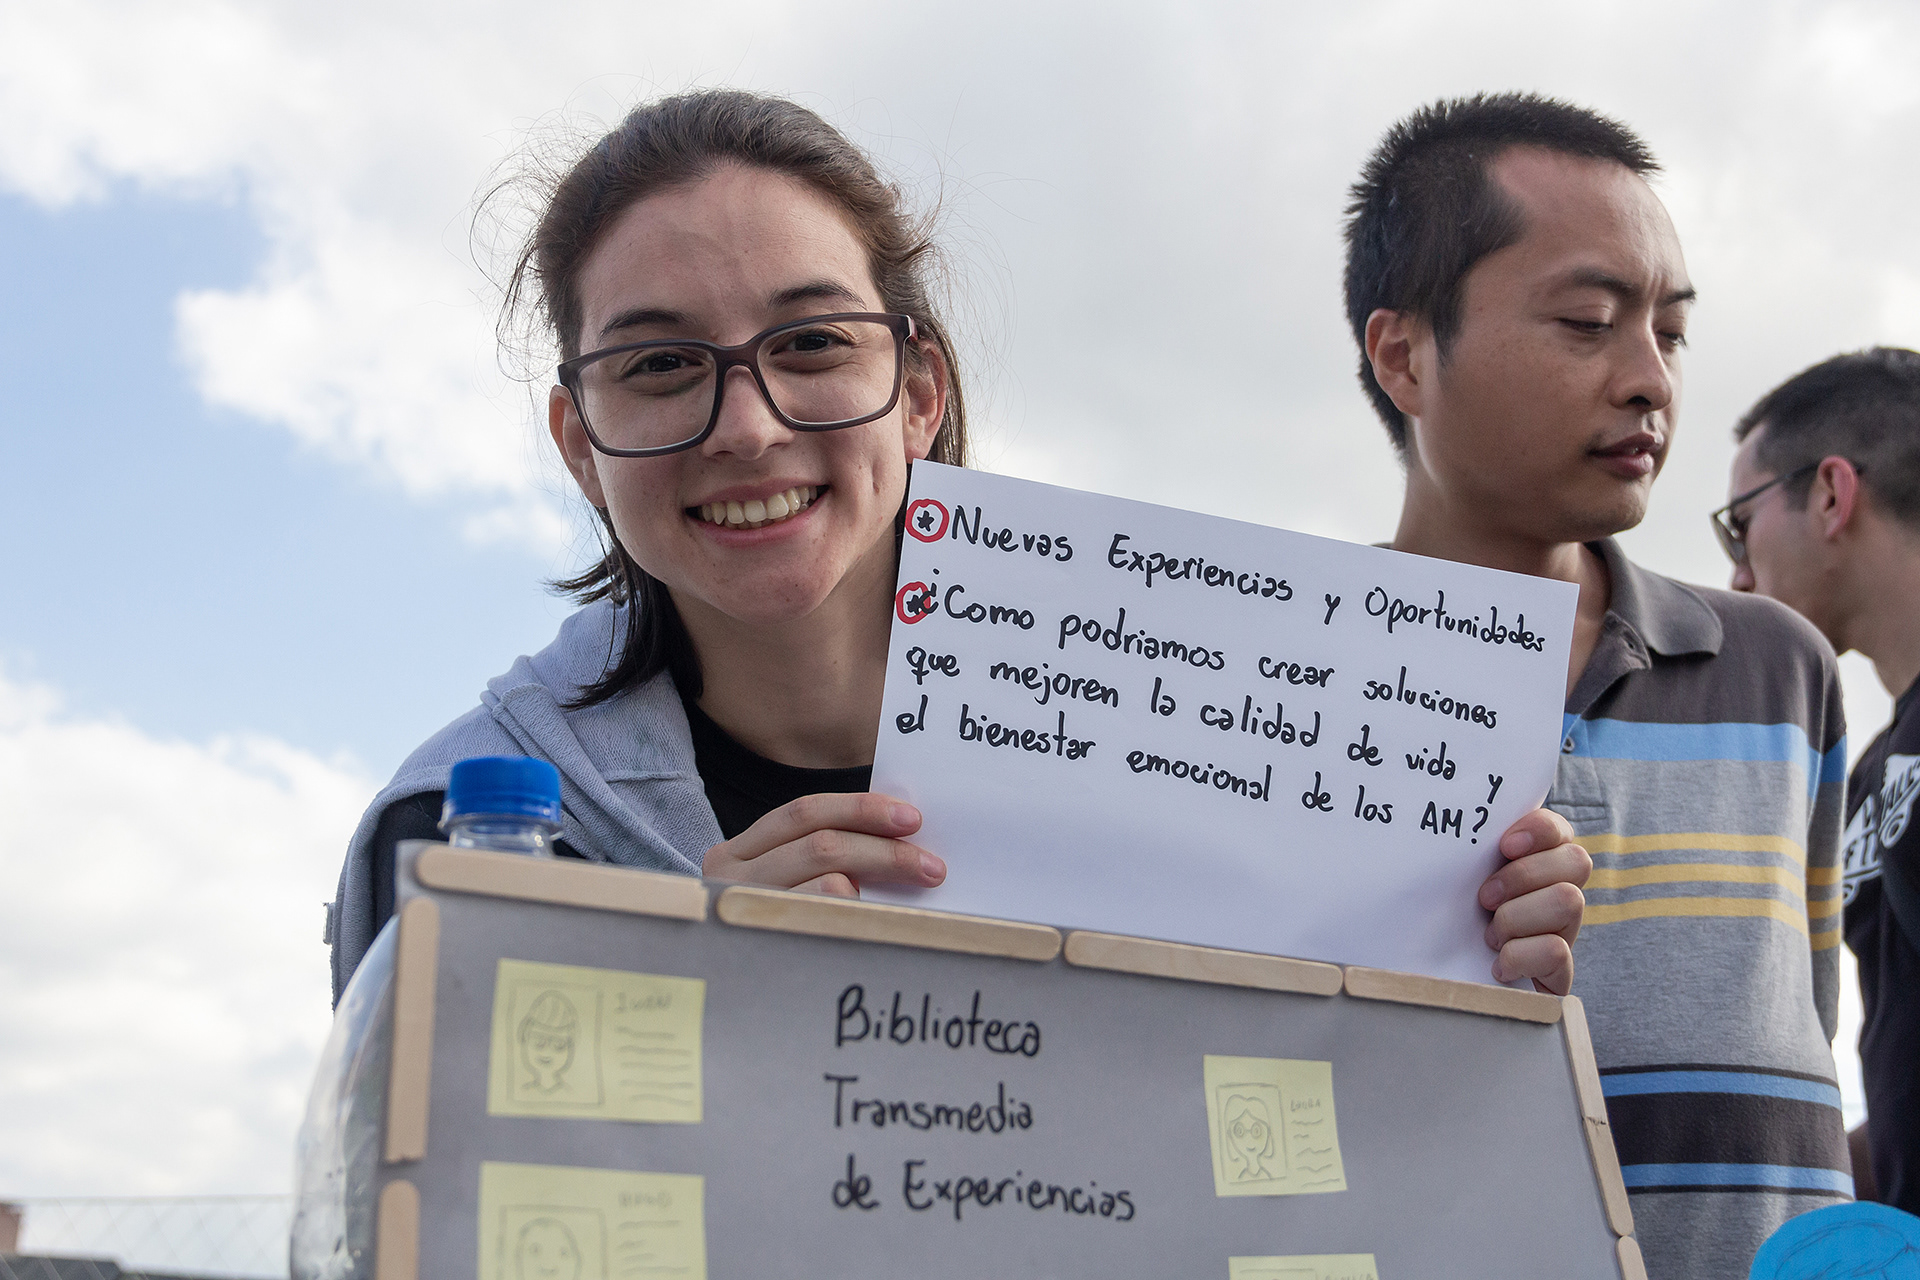 Nuevas Experiencias y Oportunidades
¿Como podriamos crear soluciones
que mejoren la calidad de vida y
el bienestar emocional de los AM?
Biblioteca
Transmedia
de Experiencias